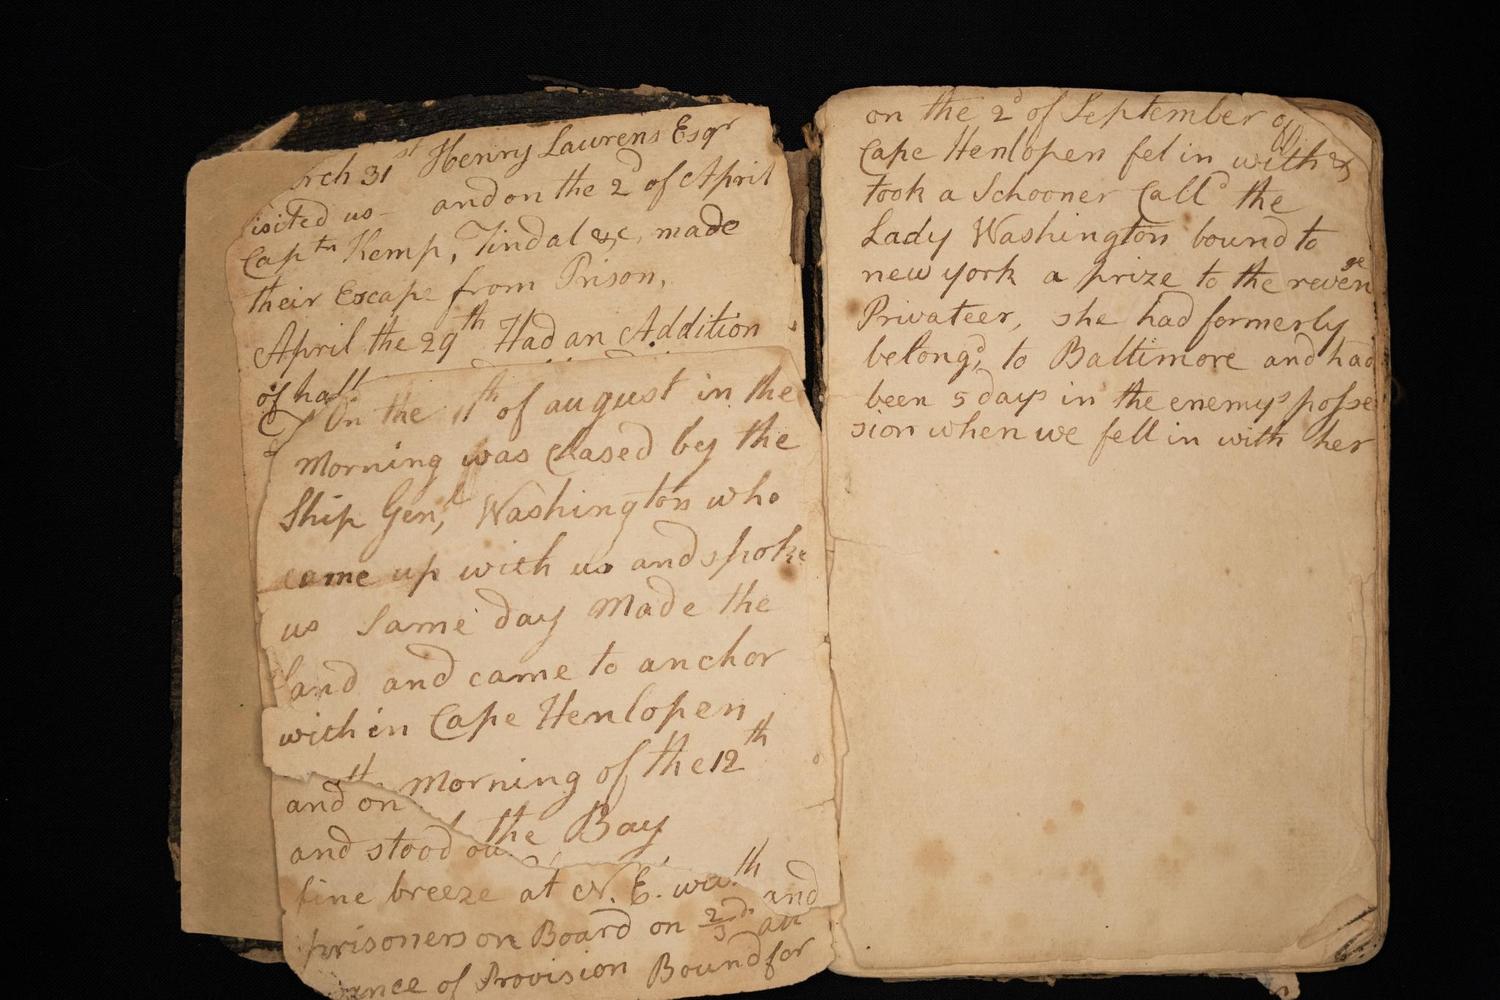 rch 31st Henry Lawrens Esqr
isited us - and on the 2d of April
Captn Kemp, Tindal &c, made
their Escape from Prison,
April the 29th Had an Addition
of half
On the 11th of august in the
Morning was Chased by the
Ship Genl, Washington who
came up with us and spoke
us Same day Made the
land and came to anchor
within Cape Henlopen
and on Morning of the 12th
and stood the Bay
fine breeze at N. E. with
prisoners on Board on 2/3ds and
ance of Provision Bound for
on the 2d of September off
Cape Henlopen fel in with &
took a Schooner Calld the
Lady Washington bound to
new york a prize to the revenge
Privateer, she had formerly
belongd, to Baltimore and had
been 5 days in the enemys posse
sion when we fell in with her